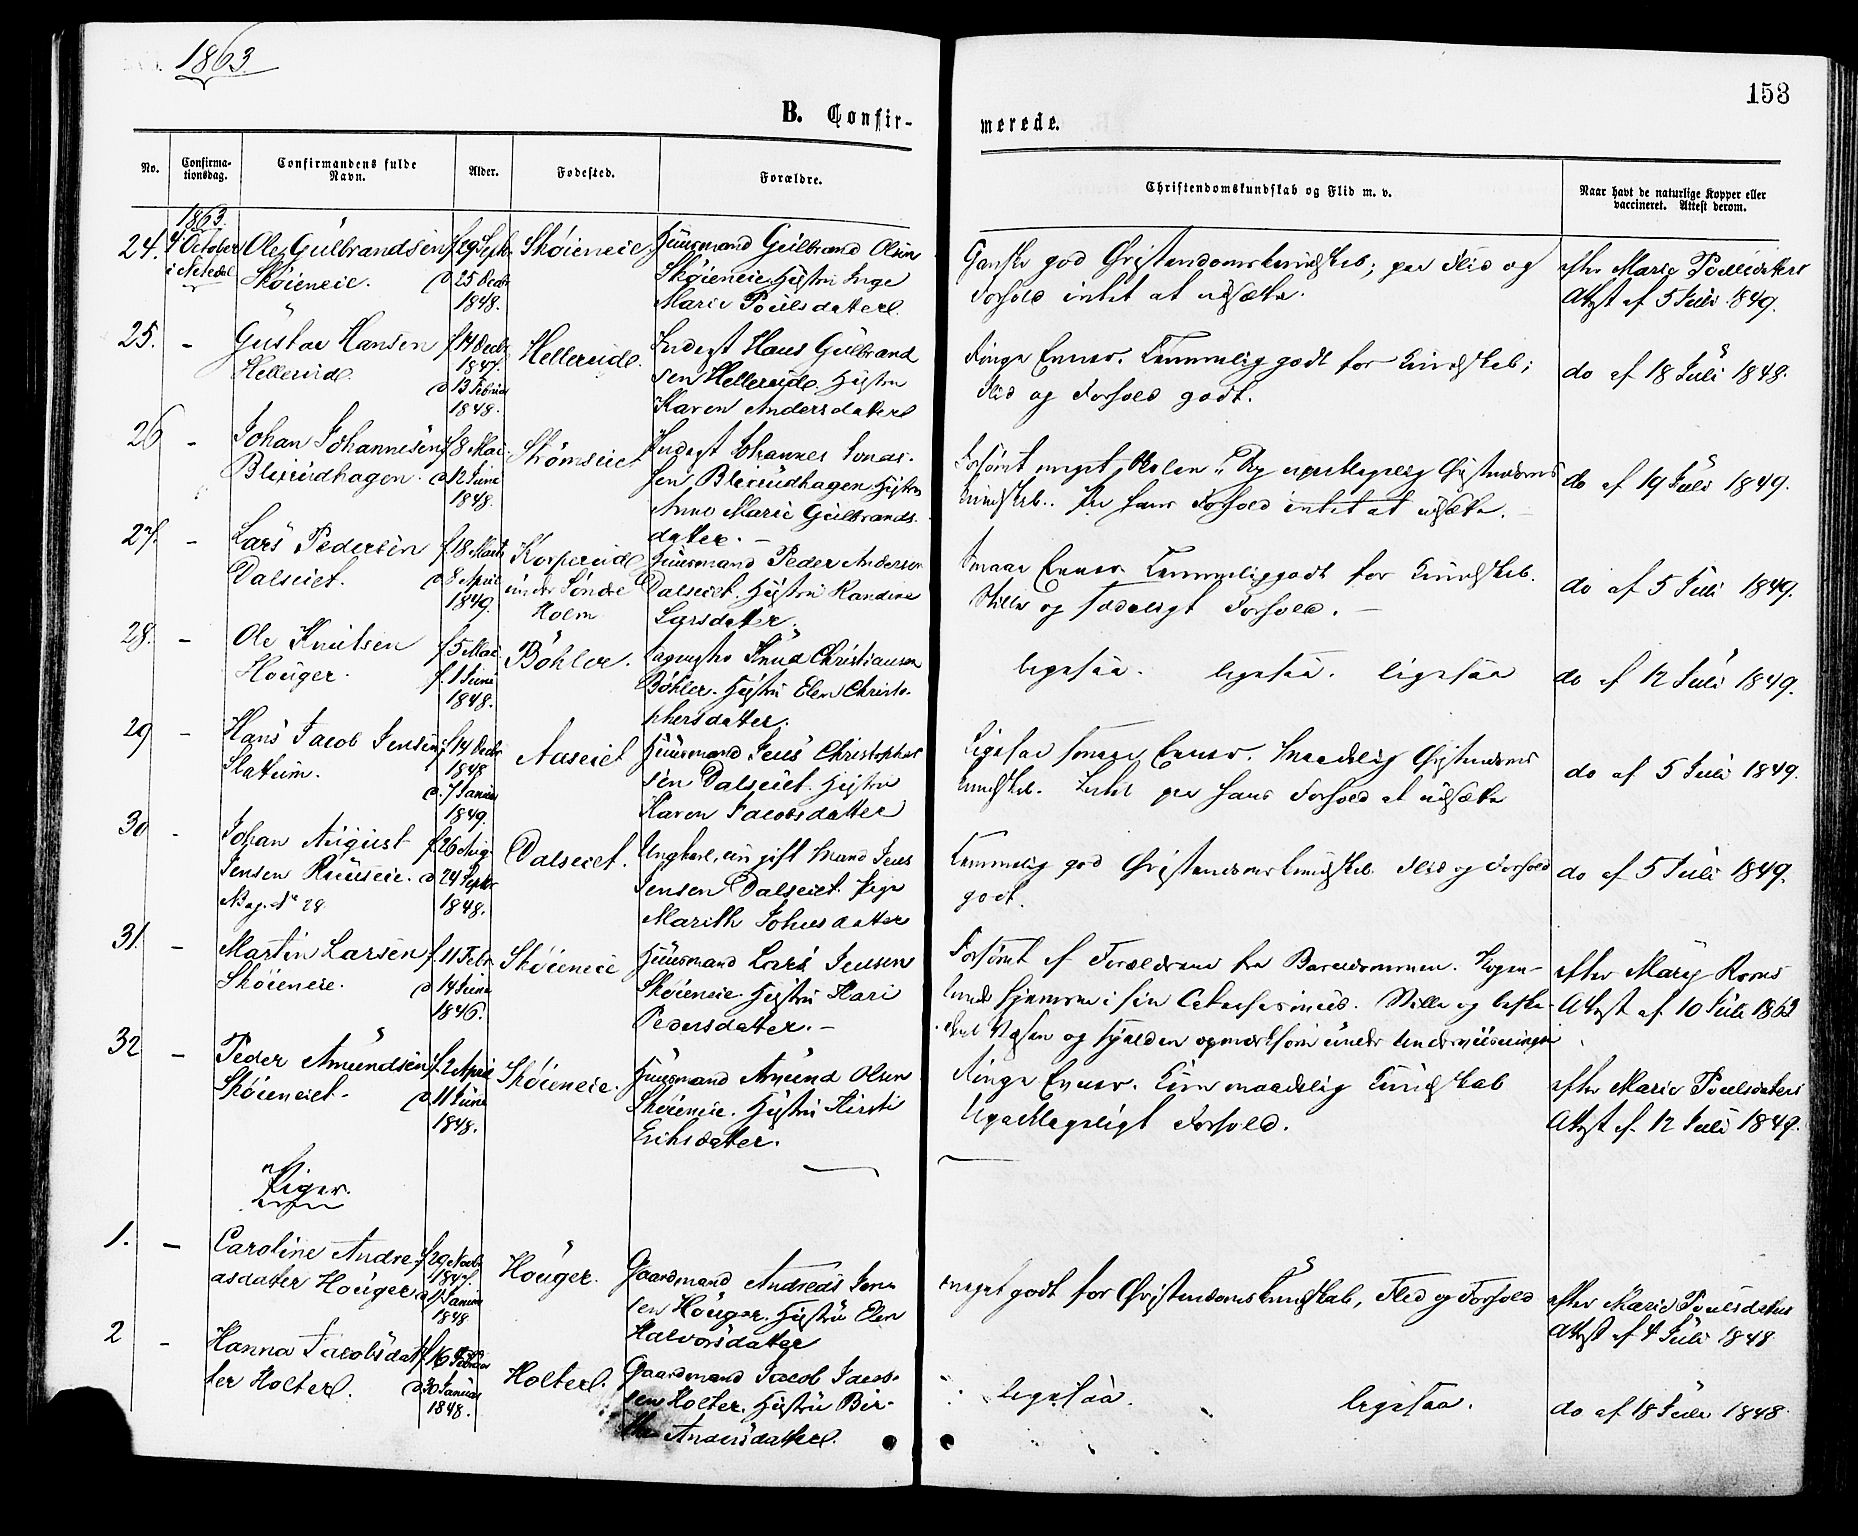 1863.
153
B. Confir-
merede.
No.
Confirma-
tionsdag.
Confirmandens fulde
Navn.
Alder.
Fødested.
Forældre.
Christendomskundskab og Flid m. v.
Naar havt de naturlige Kopper eller
vaccineret. Attest derom.
1863.
24. 4 October Ole Gulbrandsen f 29 Septr Skøieneie. Huusmand Gulbrand Olsen
Skøieneie. d 25 Decbr Skøieneie. Hustru Inge
1848. Marie Poulsdatter.
Ganske god Christendomskundskab; paa Flid og
Forhold intet at udsætte.
efter Marie Poulsdatters
Attest af 5 Juli 1849.
25. - Gustav Hansen f 14 Decbr Hellerud. Inderst Hans Gulbrand
Hellerud. 1847. sen Hellerud. Hustru
d 13 Februar Karen Andersdatter
1848.
Ringe Evner. Temmelig godt for Kundskab;
Flid og Forhold godt.
do af 18 Juli 1848.
26 - Johan Johannesen f 8 Mai Strømseiet Inderst Johannes
Blixrudhagen. d 12 Juni sen Blixrudhagen Hustru
1848. Anne Marie Gulbrands-
datter. -
Forsømt meget Skolen. Christendoms
kundskab. Paa hans Forhold intet at udsætte.
do af 19 Juli 1849.
27. - Lars Pedersen f 18 Marts Korperud Huusmand Peder Andersen
Dalseiet. d 8 April under Søndre Dalseiet. Hustru Randine
1849. Holm Larsdatter.
Smaae Evner. Temmelig godt for Kundskab.
Stille og sædeligt Forhold. -
do af 5 Juli 1849.
28. - Ole Knutsen f 5 Mai Bøhler. Knud Christiansen
Houger. f. 1 Juni Bøhler. Hustru Elen Christo-
1848. phersdatter.
ligesaa. ligesaa. ligesaa
do af 12 Juli 1849.
29 - Hans Jacob Jensen f 14 Decbr Aaseiet Huusmand Jens Christopher
Slatum. 1848 sen Dalseiet. Hustru
d. 7 Januar Karen Jacobsdatter
1849.
Ligesaa Evner. Maadelig Christendoms
kundskab. Intet paa hans Forhold at udsætte
do af 5 Juli 1849.
30 - Johan August f 26 Aug. Dalseiet. Ungkarl, nu gift Mand Jens
Jensen d 24 Septbr Jensen Dalseiet. Pige
No 28 1848. Marith Johnsdatter
Temmelig god Christendomskundskab. Flid og Forhold
godt.
do af 5 Juli 1849.
31. - Martin Larsen f. 11 Febr. Skøieneie Huusmand Lars Jensen
Skøieneie. d 14 Juni Skøieneie. Hustru Kari
1846. Pedersdatter. -
Forsømt af Forældrene fra Barndommen.
i sin Catechismus. Stille og beske-
dent Væsen og sjelden opmærksom under Underviisningen
efter
Attest af 10 Juli 1863
32 - Peder Amundsen f. 2 April Skøieneie. Huusmand Amund Olsen
Skøieneiet. d 11 Juni Skøieneie. Hustru Kirsti
1848. Eriksdatter.
Ringe Evner. Kun maadelig Kundskab
Upaaklageligt Forhold.
efter Marie Poulsdatters
Attest af 12 Juli 1849.
Piger.
1. - Caroline Andre- f 29 Novbr Houger. Gaardmand Andreas Jen-
asdatter Houger 1847. sen Houger. Hustru Elen
d 1 Januar Halvorsdatter
1848
Meget godt for Christendomskundskab, Flid og Forhold
efter Marie Poulsdatters
Attest af 4 Juli 1848
2 - Hanna Jacobsdat- f 16 Holter. Gaardmand Jacob Jacob-
ter Holter. d 30 Januar sen Holter. Hustru Bir-
1848. the Andersdatter.
ligesaa. ligesaa.
do af 18 Juli 1848